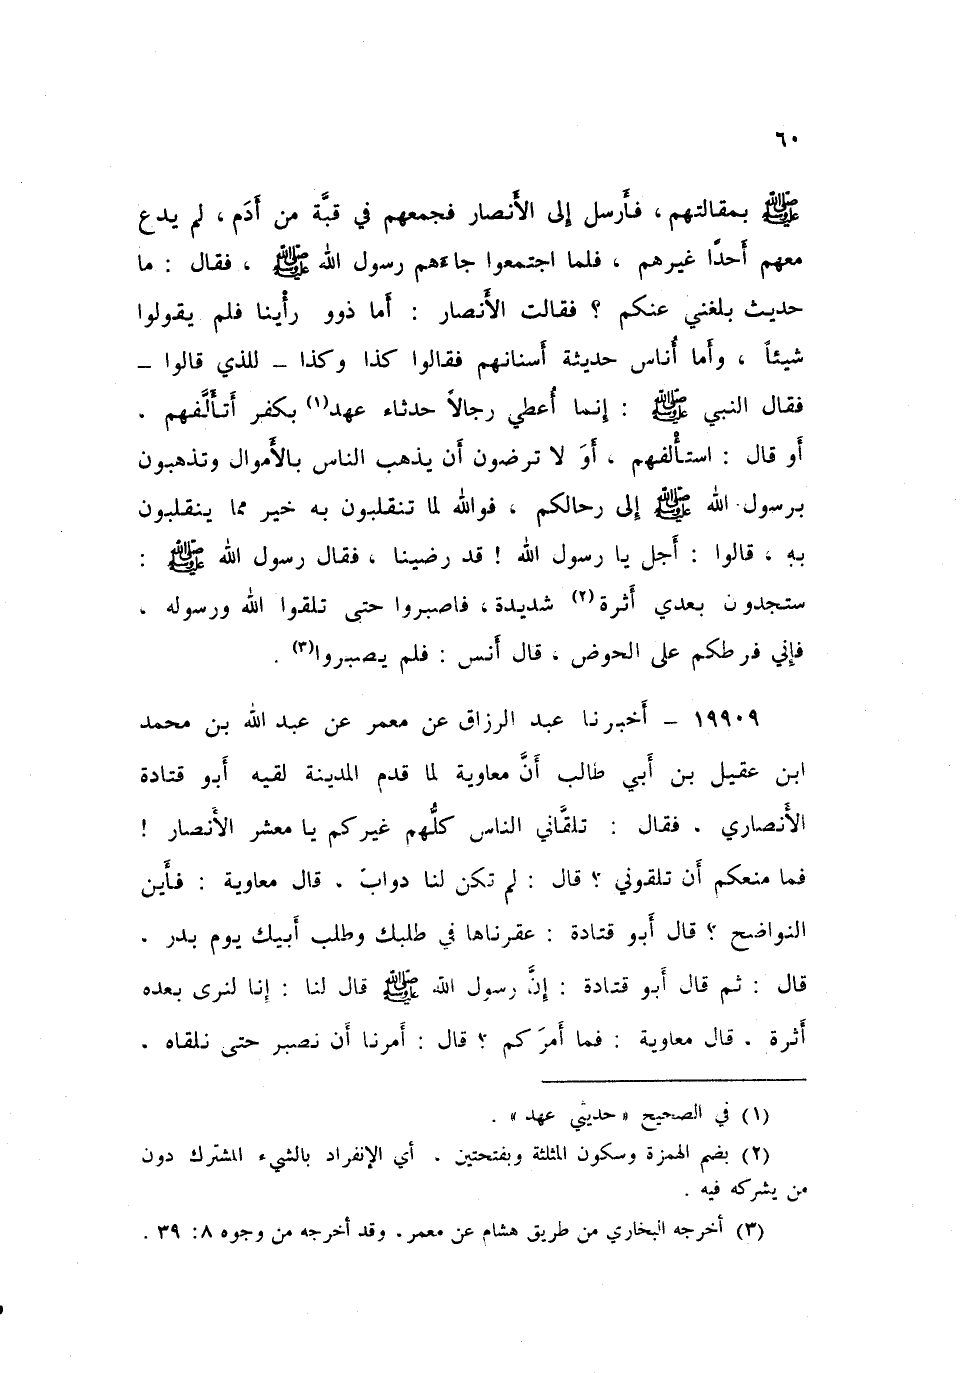 ٦٠
ﷺ بمقالتهم ، فأَرسل إلى الأَنصار فجمعهم في قبَّة من أَدَم ، لم يدع
معهم أَحدًا غيرهم ، فلما اجتمعوا جاءهم رسول الله ﷺ ، فقال : ما
حديث بلغني عنكم ؟ فقالت الأَنصار : أَما ذوو رأْينا فلم يقولوا
شيئاً ، وأَما أُناس حديثة أَسنانهم فقالوا كذا وكذا – للذي قالوا –
فقال النبي ﷺ : إِنما أُعطي رجالاً حدثاء عهد(١) بكفر أَتأَلَّفهم .
أَو قال : استأْلفهم ، أَوَ لا ترضون أَن يذهب الناس بالأَموال وتذهبون
برسول الله ﷺ إلى رحالكم ، فوالله لما تنقلبون به خير مما ينقلبون
به ، قالوا : أَجل يا رسول الله ! قد رضينا ، فقال رسول الله ﷺ :
ستجدون بعدي أَثرة(٢) شديدة ، فاصبروا حتى تلقوا الله ورسوله ،
فإني فرطكم على الحوض ، قال أَنس : فلم يصبروا(٣) .
١٩٩٠٩ – أَخبرنا عبد الرزاق عن معمر عن عبد الله بن محمد
ابن عقيل بن أَبي طالب أَنَّ معاوية لما قدم المدينة لقيه أَبو قتادة
الأَنصاري . فقال : تلقَّاني الناس كلُّهم غيركم يا معشر الأَنصار !
فما منعكم أَن تلقوني ؟ قال : لم تكن لنا دوابّ . قال معاوية : فأَين
النواضح ؟ قال أَبو قتادة : عقرناها في طلبك وطلب أَبيك يوم بدر .
قال : ثم قال أَبو قتادة : إِنَّ رسول الله ﷺ قال لنا : إِنا لنرى بعده
أَثرة . قال معاوية : فما أَمرَكم ؟ قال : أَمرنا أَن نصبر حتى نلقاه .
(١) في الصحيح « حديثي عهد » .
(٢) بضم الهمزة وسكون المثلثة وبفتحتين . أي الإنفراد بالشيء المشترك دون
من يشركه فيه .
(٣) أخرجه البخاري من طريق هشام عن معمر. وقد أخرجه من وجوه ٨: ٣٩ .